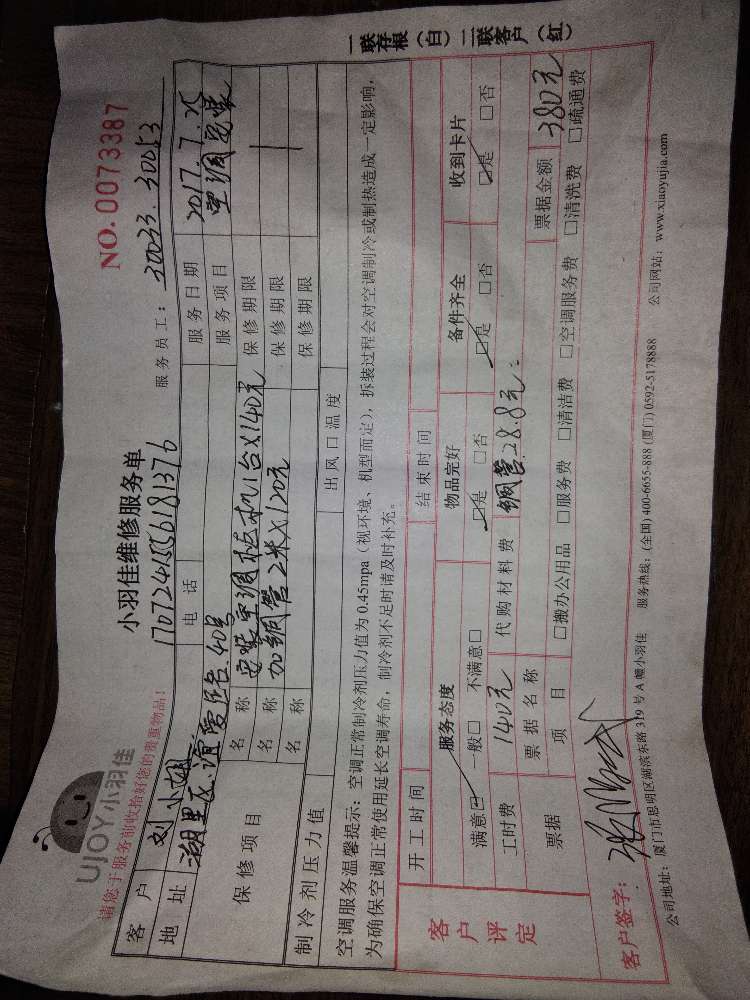 UJOY小羽佳
请您于服务前收拾好您的贵重物品!
小羽佳维修服务单
NO. 0073387
服务员工: 30033.30053
客户 刘小姐 电话 1707241556181376 服务日期 2017.7.25
地址 湖里区谊爱路40号 服务项目 空调安装
保修项目
名称 安装空调柜机1台X140元 保修期限
名称 加铜管2米X120元 保修期限
名称 保修期限
制冷剂压力值 出风口温度
空调服务温馨提示: 空调正常制冷剂压力值为 0.45mpa (视环境、机型而定), 拆装过程会对空调制冷或制热造成一定影响,
为确保空调正常使用延长空调寿命, 制冷剂不足时请及时补充。
客户评定
开工时间 结束时间
服务态度 物品完好 备件齐全 收到卡片
满意☑ 一般□ 不满意□ ☑是 □否 ☑是 □否 ☑是 □否
工时费 140元 代购材料费 铜管:28.8元
票据 票据名称 票据金额 380元
项目 □搬办公用品 □服务费 □清洁费 □空调服务费 □清洗费 □疏通费
客户签字:
公司地址: 厦门市思明区湖滨东路 319 号 A 幢小羽佳 服务热线: (全国) 400-6655-888 (厦门) 0592-5178888 公司网站: www.xiaoyujia.com
一联存根(白) 二联客户(红)